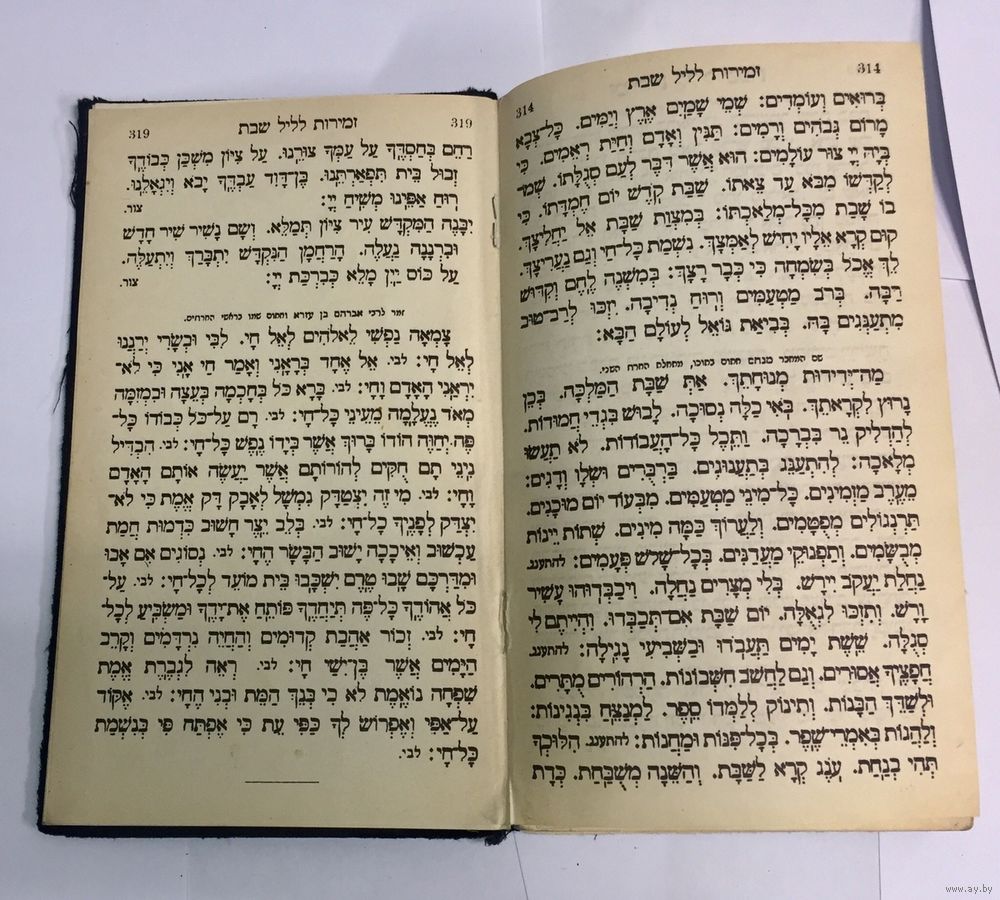 314 זמירות לליל שבת 314
בְּרוּאִים וְעוֹמְדִים: שְׁמֵי שָׁמַיִם אֶרֶץ וְיַמִּים. כָּל־צְבָא
מָרוֹם גְּבֹהִים וְרָמִים: תַּנִּין וְאָדָם וְחַיַּת רְאֵמִים. כִּי
בְּיָהּ יְיָ צוּר עוֹלָמִים: הוּא אֲשֶׁר דִּבֶּר לְעַם סְגֻלָּתוֹ. שָׁמוֹר
לְקַדְּשׁוֹ מִבֹּא עַד צֵאתוֹ. שַׁבַּת קֹדֶשׁ יוֹם חֶמְדָּתוֹ. כִּי
בוֹ שָׁבַת מִכָּל־מְלַאכְתּוֹ: בְּמִצְוַת שַׁבָּת אֵל יַחֲלִיצָךְ.
קוּם קְרָא אֵלָיו יָחִישׁ לְאַמְּצָךְ. נִשְׁמַת כָּל־חַי וְגַם נַעֲרִיצָךְ.
לֵךְ אֱכֹל בְּשִׂמְחָה כִּי כְּבָר רָצָךְ: בְּמִשְׁנֶה לֶחֶם וְקִדּוּשׁ
רַבָּה. בְּרֹב מַטְעַמִּים וְרוּחַ נְדִיבָה. יִזְכּוּ לְרַב־טוּב
מִתְעַנְּגִים בָּהּ. בְּבִיאַת גּוֹאֵל לְעוֹלָם הַבָּא:
שם המחבר מנחם חתום בתוכו, ומתחלת החרוז השני.
מַה־יְּדִידוּת מְנוּחָתֵךְ. אַתְּ שַׁבָּת הַמַּלְכָּה. בְּכֵן
נָרוּץ לִקְרָאתֵךְ. בֹּאִי כַלָּה נְסוּכָה. לְבוּשׁ בִּגְדֵי חֲמוּדוֹת.
לְהַדְלִיק נֵר בִּבְרָכָה. וַתֵּכֶל כָּל־הָעֲבוֹדוֹת. לֹא תַעֲשׂוּ
מְלָאכָה: לְהִתְעַנֵּג בְּתַעֲנוּגִים. בַּרְבֻּרִים וּשְׂלָו וְדָגִים:
מֵעֶרֶב מַזְמִינִים. כָּל־מִינֵי מַטְעַמִּים. מִבְּעוֹד יוֹם מוּכָנִים.
תַּרְנְגוֹלִים מְפֻטָּמִים. וְלַעֲרוֹךְ בַּמָּה מִינִים. שְׁתוֹת יֵינוֹת
מְבֻשָּׂמִים. וְתַפְנוּקֵי מַעֲדַנִּים. בְּכָל־שָׁלֹשׁ פְּעָמִים: להתענג.
נַחֲלַת יַעֲקֹב יִירָשׁ. בְּלִי מְצָרִים נַחֲלָה. וִיכַבְּדֽוּהוּ עָשִׁיר
וָרָשׁ. וְתִזְכּוּ לִגְאֻלָּה. יוֹם שַׁבָּת אִם־תְּכַבֵּדוּ. וִהְיִיתֶם לִי
סְגֻלָּה. שֵׁשֶׁת יָמִים תַּעֲבֹדוּ וּבַשְּׁבִיעִי נָגִילָה: להתענג.
חֲפָצֶיךָ אֲסוּרִים. וְגַם לַחֲשֹׁב חֶשְׁבּוֹנוֹת. הִרְהוּרִים מֻתָּרִים.
וּלְשַׁדֵּךְ הַבָּנוֹת. וְתִינוֹק לְלַמְּדוֹ סֵפֶר. לַמְנַצֵּחַ בִּנְגִינוֹת:
וְלַהֲגוֹת בְּאִמְרֵי־שֶׁפֶר. בְּכָל־פִּנּוֹת וּמַחֲנוֹת: להתענג. הִלּוּכְךָ
תְּהִי בְנַחַת. עֹנֶג קְרָא לַשַּׁבָּת. וְהַשֵּׁנָה מְשֻׁבַּחַת. כְּדָת
319 זמירות לליל שבת 319
רַחֵם בְּחַסְדֶּךָ עַל עַמְּךָ צוּרֵנוּ. עַל צִיּוֹן מִשְׁכַּן כְּבוֹדֶךָ
זְבוּל בֵּית תִּפְאַרְתֵּנוּ. בֶּן־דָּוִד עַבְדֶּךָ יָבֹא וְיִגְאָלֵנוּ.
רוּחַ אַפֵּינוּ מְשִׁיחַ יְיָ: צור.
יִבָּנֶה הַמִּקְדָּשׁ עִיר צִיּוֹן תְּמַלֵּא. וְשָׁם נָשִׁיר שִׁיר חָדָשׁ
וּבִרְנָנָה נַעֲלֶה. הָרַחֲמָן הַנִּקְדָּשׁ יִתְבָּרַךְ וְיִתְעַלֶּה.
עַל כּוֹס יַיִן מָלֵא כְּבִרְכַּת יְיָ: צור.
זמר לרבי אברהם בן עזרא וחתום שמו בראשי החרוזים.
צָמְאָה נַפְשִׁי לֵאלֹהִים לְאֵל חָי. לִבִּי וּבְשָׂרִי יְרַנְּנוּ
לְאֵל חָי: לבי. אֵל אֶחָד בְּרָאָנִי וְאָמַר חַי אָנִי כִּי לֹא־
יִרְאַנִי הָאָדָם וָחָי: לבי. בָּרָא כֹּל בְּחָכְמָה בְּעֵצָה וּבִמְזִמָּה
מְאֹד נֶעֱלָמָה מֵעֵינֵי כָל־חָי: לבי. רָם עַל־כֹּל כְּבוֹדוֹ כָּל־
פֶּה יְחַוֶּה הוֹדוֹ בָּרוּךְ אֲשֶׁר בְּיָדוֹ נֶפֶשׁ כָּל־חָי: לבי. הִבְדִּיל
נִינֵי תָם חֻקִּים לְהוֹרוֹתָם אֲשֶׁר יַעֲשֶׂה אוֹתָם הָאָדָם
וָחָי: לבי. מִי זֶה יִצְטַדָּק נִמְשַׁל לְאָבָק דָּק אֱמֶת כִּי לֹא־
יִצְדַּק לְפָנֶיךָ כָל־חָי: לבי. בְּלֵב יֵצֶר חָשׁוּב כִּדְמוּת חֲמַת
עַכְשׁוּב וְאֵיכָכָה יָשׁוּב הַבָּשָׂר הֶחָי: לבי. נְסוֹגִים אִם אָבוּ
וּמִדַּרְכָּם שָׁבוּ טֶרֶם יִשְׁכָּבוּ בֵּית מוֹעֵד לְכָל־חָי: לבי. עַל־
כֹּל אֲהוֹדֶךָ כָּל־פֶּה תְּיַחֲדֶךָ פּוֹתֵחַ אֶת־יָדֶךָ וּמַשְׂבִּיעַ לְכָל־
חָי: לבי. זְכוֹר אַהֲבַת קְדוּמִים וְהַחֲיֵה נִרְדָּמִים וְקָרֵב
הַיָּמִים אֲשֶׁר בֶּן־יִשַׁי חָי: לבי. רְאֵה לִגְבֶרֶת אֱמֶת
שִׁפְחָה נוֹאֶמֶת לֹא כִי בְּנֵךְ הַמֵּת וּבְנִי הֶחָי: לבי. אֶקּוֹד
עַל־אַפִּי וְאֶפְרוֹשׂ לְךָ כַּפִּי עֵת כִּי אֶפְתַּח פִּי בְּנִשְׁמַת
כָּל־חָי: לבי.
www.ay.by